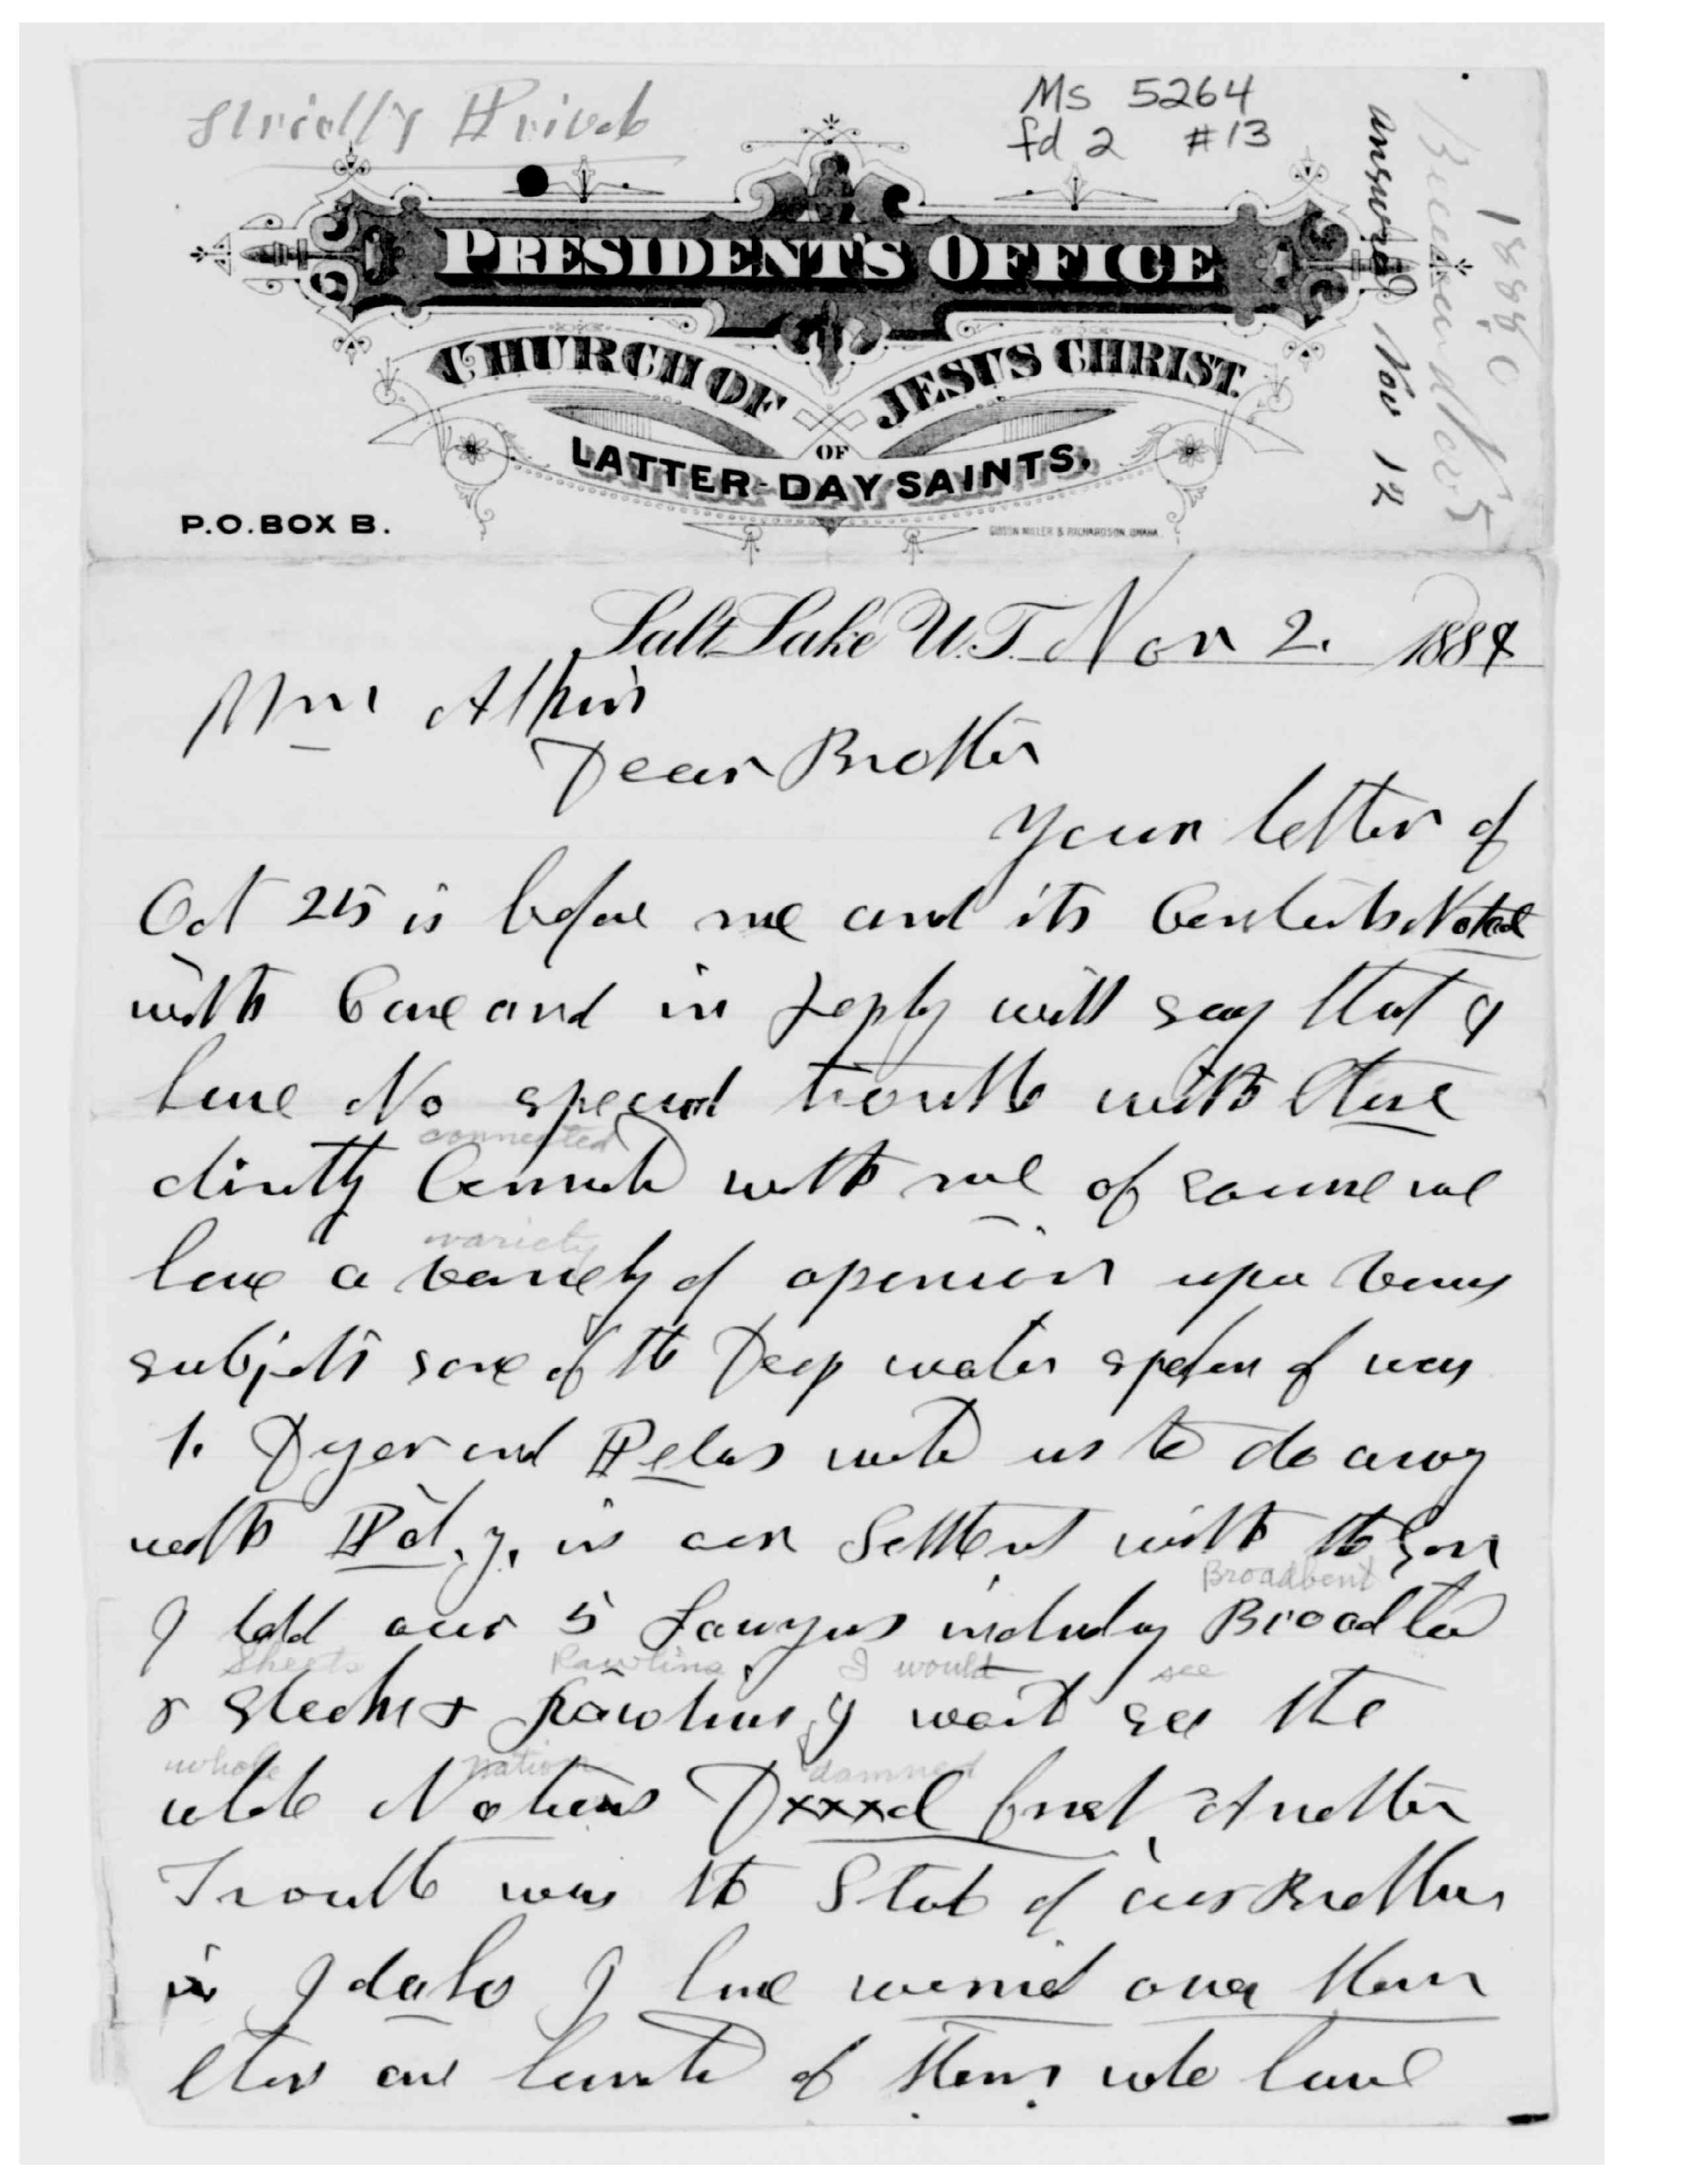 Strictly Private
Ms 5264
fd 2 #13
1888
answered Nov 12
PRESIDENT'S OFFICE
CHURCH OF JESUS CHRIST
OF
LATTER-DAY SAINTS.
P.O. BOX B.
GIBSON MILLER & RICHARDSON OMAHA
Salt Lake U.T. Nov 2. 1888
Wm Atkin
Dear Brother
your letter of
Oct 25 is before me and its Contents Noted
with Care and in reply will say that I
have No special trouble with those
directly Connected with me of course we
connected
have a variety of opinion upon various
variety
subjects some of the Deep water spoken of was
1. Dyer and Peters wanted us to do away
with P.l.y. in our Settlement with the Gov
I told our 5 Lawyers including Broadbent
Broadbent
& Sheeks & Rawlins I would see the
Sheets Rawlins I would see
whole Nations Dxxxd first, Another
whole nation damned
Trouble was the State of our Brethren
in Idaho I have worried over them
there are hundreds of them who have